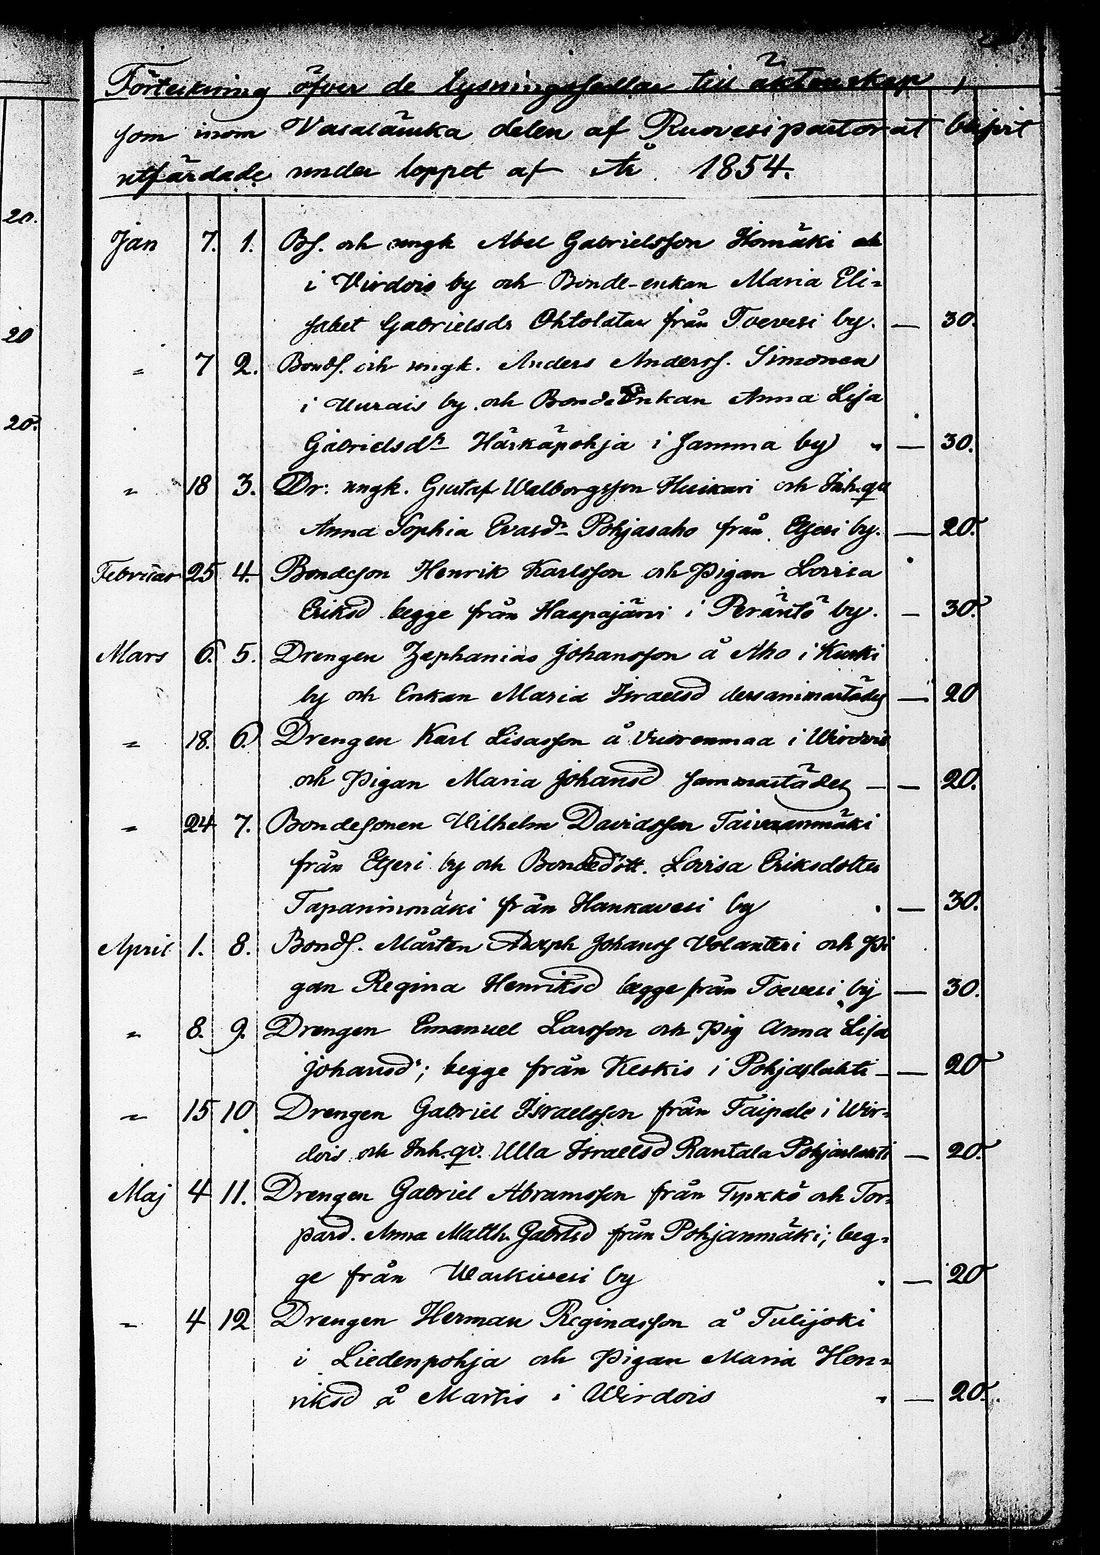 Förteckning öfver de lysningssedlar till äktenskap,
som inom Vasalänska delen af Ruovesi pastorat blifvit
utfärdade under loppet af År 1854.
20.
Jan 7. 1. Bs. och ungk Abel Gabrielsson Homäki
i Virdois by och Bonde-enkan Maria Eli-
sabet Gabrielsdr Ohtolatar från Toevesi by. — 30.
20
" 7 2. Bonds. och ungk. Anders Anderss. Simonen
i Uurais by och Bonde Enkan Anna Lisa
20.
Gabrielsdr Härkäpohja i samma by " — 30.
" 18 3. Dr: ungk. Gustaf Walborgsson Huikari och Inh.qv
Anna Sophia Evasdr Pohjasaho från Etseri by. — 20.
Februar 25 4. Bondeson Henrik Karlsson och Pigan Lovisa
Eriksd begge från Haapajärvi i Peräntö by. — 30.
Mars 6. 5. Drengen Zephanias Johansson å Aho i Kurki
by och Enkan Maria Israelsd dersammastädes — 20
" 18. 6. Drengen Karl Lisasson å Vuorenmaa i Wirdois
och Pigan Maria Johansd sammastädes — — 20.
" 24 7. Bondesonen Vilhelm Davidsson Taivaanmäki
från Etseri by och Bondedott. Lovisa Eriksdotter
Tapaninmäki från Hankavesi by " — 30.
April 1. 8. Bonds. Mårten Adolph Johanss Volanteri och Pi
gan Regina Henriksd begge från Toevesi by — 30.
" 8. 9. Drengen Emanuel Larsson och Pig Anna Lisa
Johansd; begge från Keskis i Pohjaslahti — — 20
" 15 10. Drengen Gabriel Israelsson från Taipale i Wir-
dois och Inh.qv. Ulla Israelsd Rantala Pohjaslahti — 20.
Maj 4 11. Drengen Gabriel Abramsson från Tyrkkö och Tor-
pard. Anna Matth. Gabrlsd från Pohjanmäki; beg-
ge från Waskivesi by " — 20
" 4 12 Drengen Herman Reginasson å Tulijoki
i Liedenpohja och Pigan Maria Hen-
riksd å Martis i Wirdois " — 20.